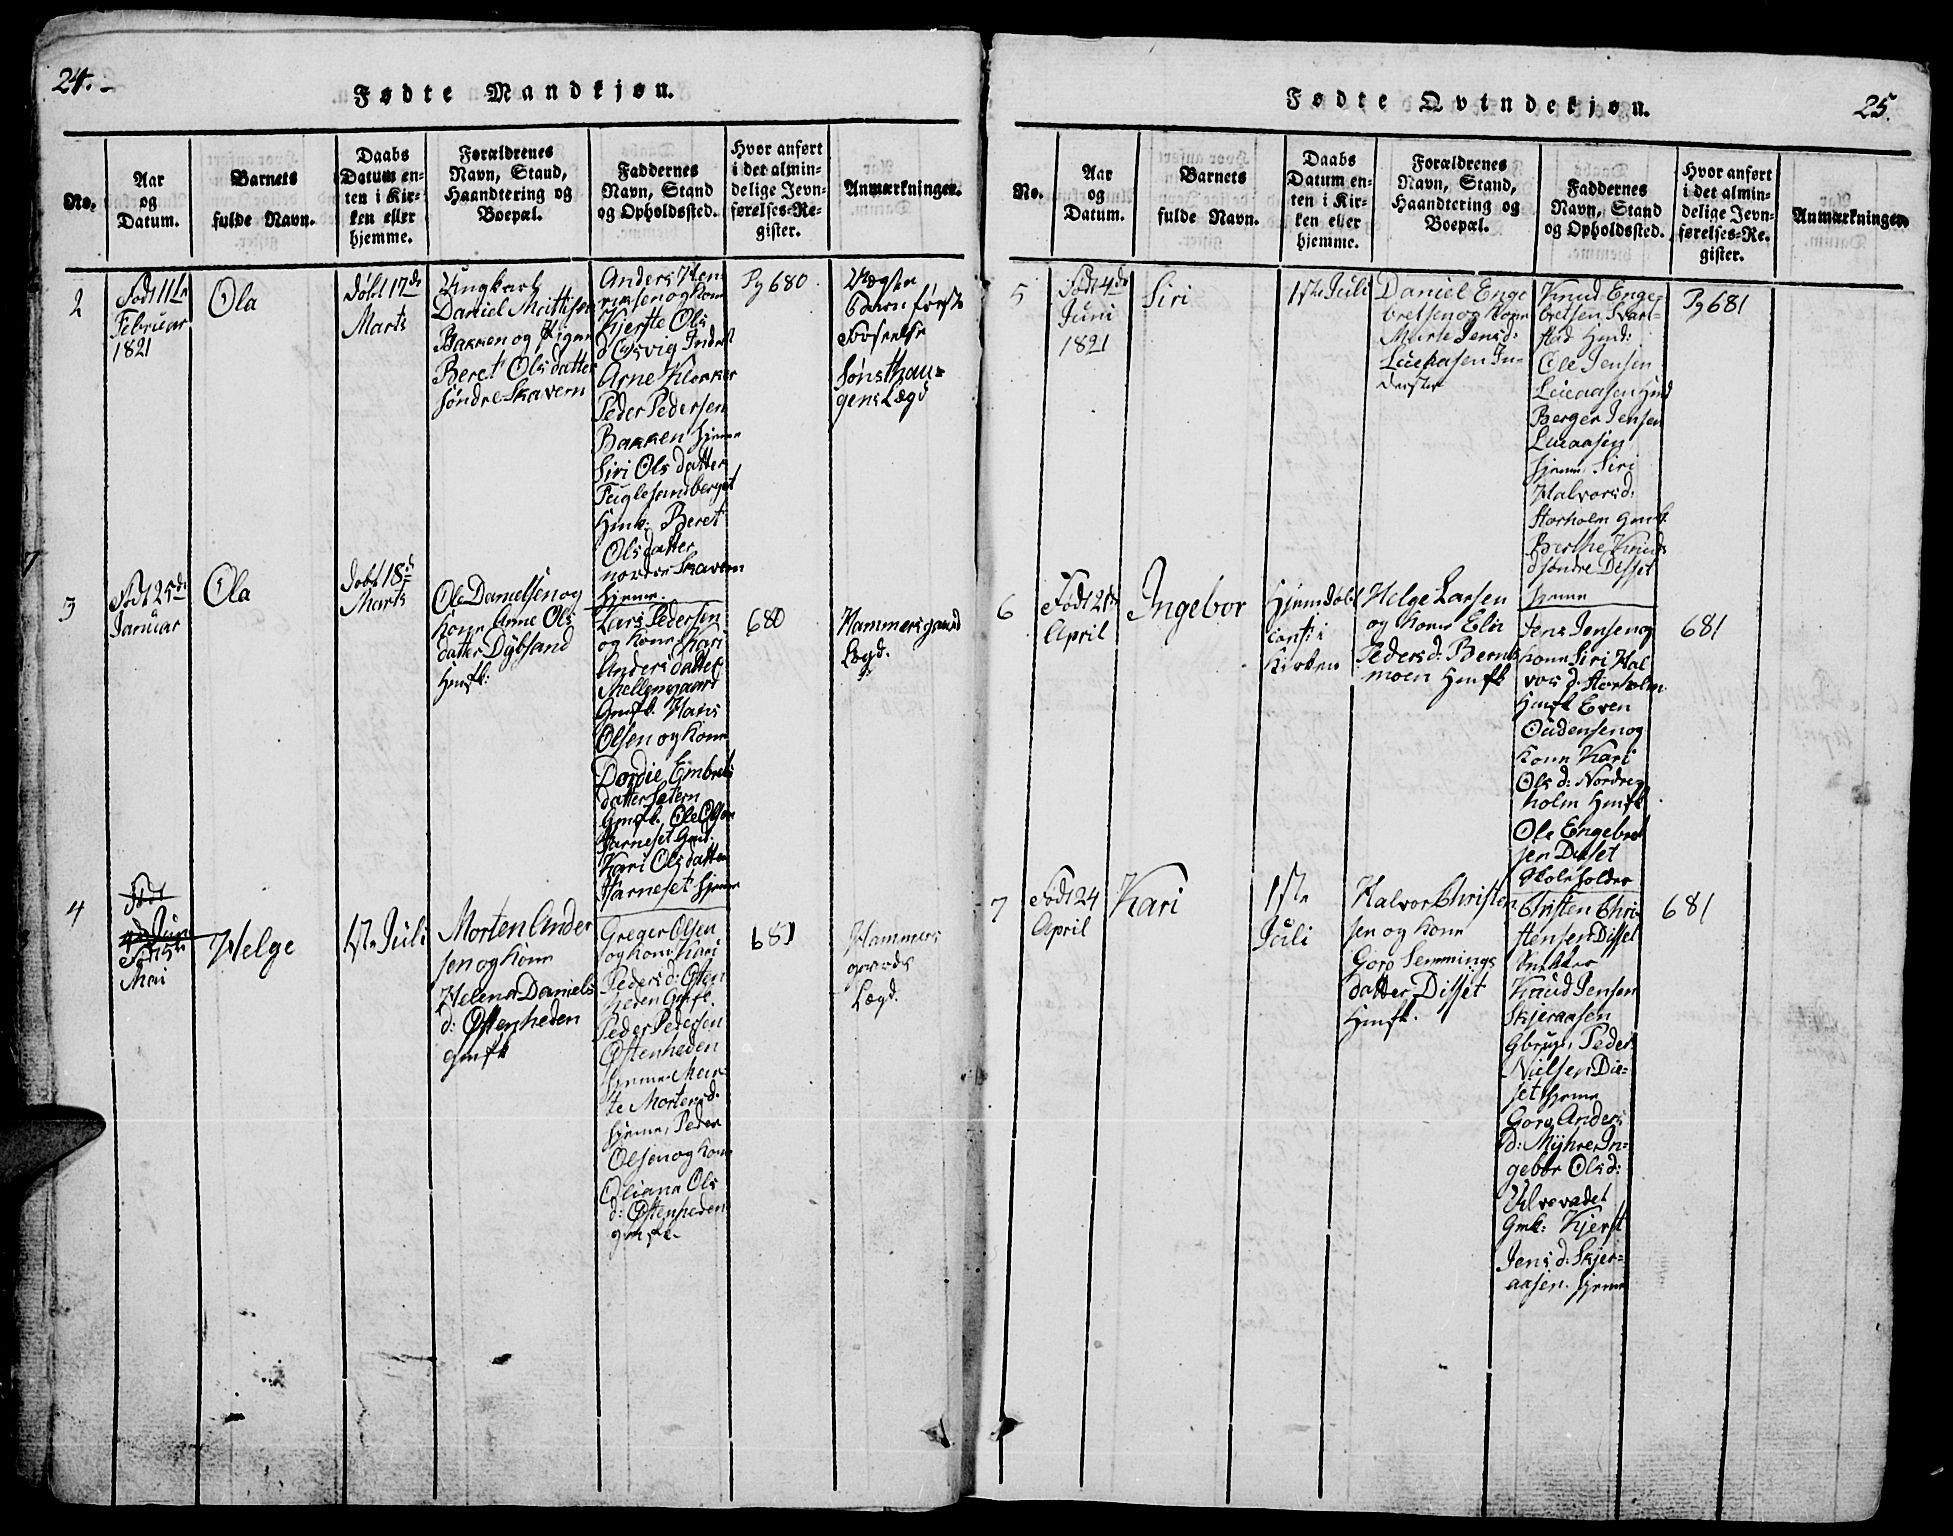 24.
Fødte Mandkjøn.
No.
Aar
og
Datum.
Barnets
fulde Navn.
Daabs
Datum en-
ten i Kir-
ken eller
hjemme.
Forældrenes
Navn, Stand,
Haandtering og
Boepæl.
Faddernes
Navn, Stand
og Opholdssted.
Hvor anført
i det almin-
delige Jevn-
førelses-Re-
gister.
Anmærkninger.
2
Født 11te
Februar
1821
Ola
døbt 17de
Marts
Ungkarl
Daniel Mathisen
Bakken og Pigen
Beret Olsdatter
søndre Skavern
Anders Hen-
riksen og Kone
Kjerste Ols
d
Arne Klokker
Peder Pedersen
Bakken hjeme
Siri Olsdatter
Fuglesandberget
Hmd: Beret
Olsdatter
nordre Skavern
hjeme.
Pg 680
Uægte
Barn første
Forseelse
Sønsthau-
gens Lægd
3
Født 25de
Januar
Ola
døbt 18de
Marts
Ole Danielsen og
Kone Anne Ols
datter Dybsand
Hmfk:
Lars Pedersen
og Kone Kari
Andersdatter
Mellemgaard
Gmfk. Hans
Olsen og Kone
Dordie Embrets
datter Setern
Gmfk. Ole Olsen
Harneset Gmd.
Kari Olsdatter
Harneset hjeme
680
Hammersgaard
Lægd.
4
Født
Født 5te
Mai
Helge
1ste Juli
Morten Ander
sen og Kone
Helene Daniels
d: Østenheden
gmfk
Greger Olsen
og Kone Kari
Pedersd: Østen
heden Gmfk.
Peder Pedersen
Østenheden
hjeme Mar-
te Mortensd.
hjeme, Peder
Olsen og Kone
Oliana Ols
d: Østenheden
gmfk.
681
Hammers
gaards
Lægd.
Fødte Qvindekjøn.
25.
No.
Aar
og
Datum.
Barnets
fulde Navn.
Daabs
Datum en-
ten i Kir-
ken eller
hjemme.
Forældrenes
Navn, Stand,
Haandtering og
Boepæl.
Faddernes
Navn, Stand
og Opholdssted.
Hvor anført
i det almin-
delige Jevn-
førelses-Re-
gister.
Anmærkninger
5
Født 4de
Juni
1821
Siri
1ste Juli
Daniel Enge
bretsen og Kone
Marte Jensd:
Lueaasen In-
derster
Knud Enge-
bretsen Svart-
stad Hmd:
Ole Jensen
Lueaasen Hmd
Berger Jensen
Lueaasen
hjeme, Siri
Halvorsd:
Storholm Gmk.
Berthe Knuds
d søndre Disset
hjeme
Pg 681
6
Født 21de
April
Ingebor
Hjemdøbt
Conf: i
Kirken
Helge Larsen
og Kone Elie
Pedersd: Berns
moen Hmfk
Jens Jensen og
Kone Siri Hal
vors d. Storholm
Hmfk Even
Oudensen og
Kone Kari
Ols d: Nordre
holm Hmfk
Ole Engebret
sen Disset
Skoleholder
681
7
Født 24
April
Kari
1ste
Juli
Halvor Christen
sen og Kone
Goro Semmings
datter Disset
Hmfk.
Christen Chri-
stensen Disset
Knud Jensen
Skjeraasen
Gbrugr, Peder
Nielsen Dis-
set hjeme
Goro Anders
d: Myhre In-
gebor Olsd:
Ulvevadet
Gmk: Kjerst
Jensd: Skjer-
aasen. hjeme
681